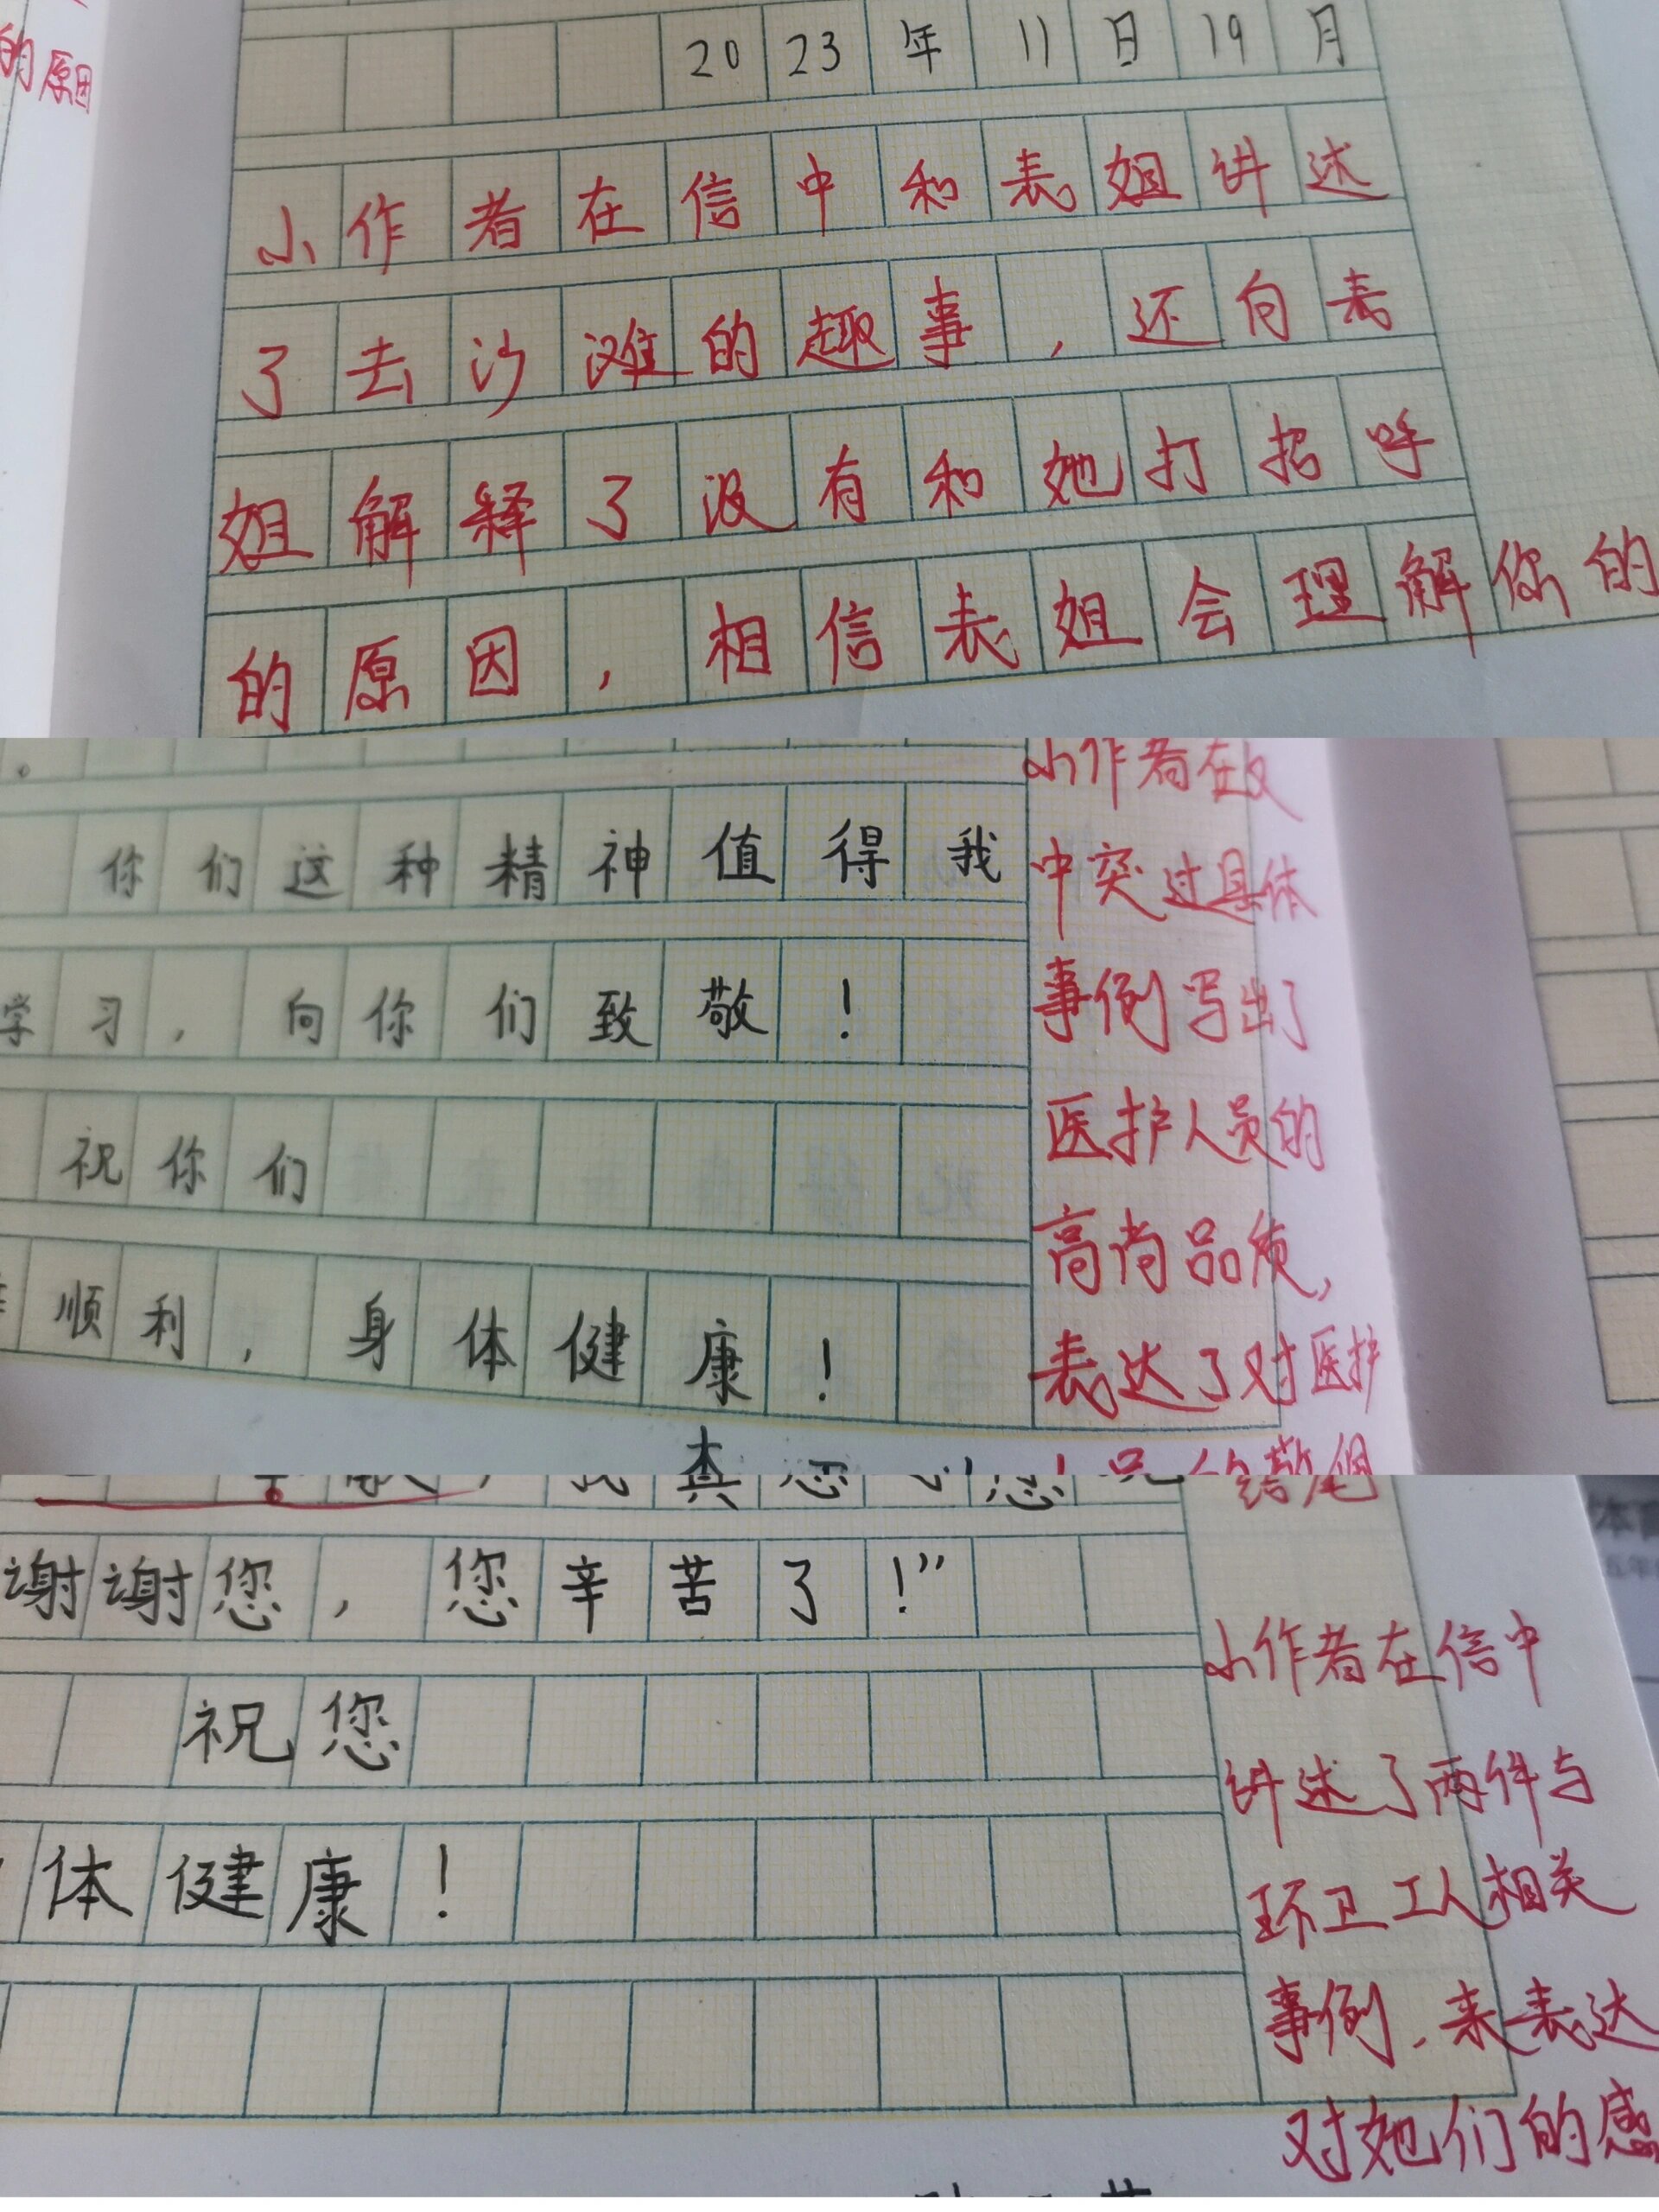 的原因
2023年11日19月
小作者在信中和表姐讲述
了去沙滩的趣事，还向表
姐解释了没有和她打招呼
的原因，相信表姐会理解你的
。
你们这种精神值得我
学习，向你们致敬！
祝你们
顺利，身体健康！
小作者在文
中突过具体
事例写出了
医护人员的
高尚品质，
表达了对医护
谢谢您，您辛苦了！”
祝您
体健康！
小作者在信中
讲述了两件与
环卫工人相关
事例，来表达
对她们的感